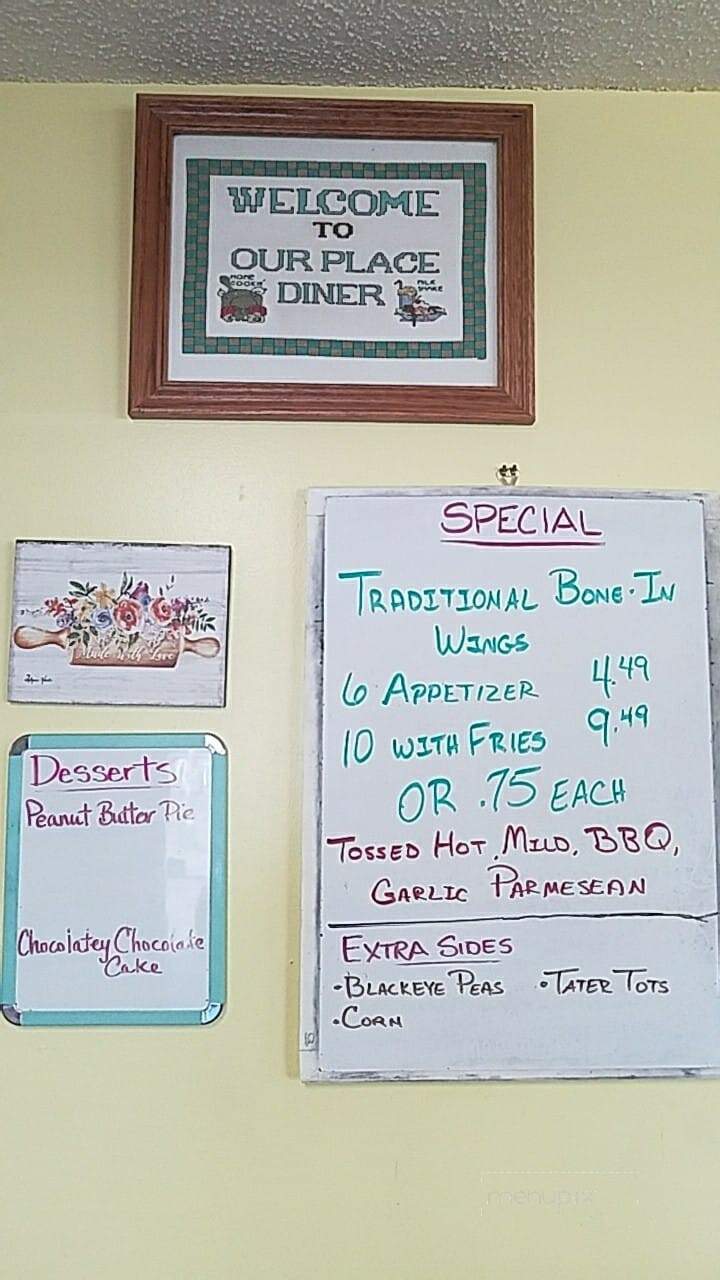 WELCOME
TO
OUR PLACE
DINER
HOME
COOKIN'
MILK
SHAKE
Made with Love
Desserts
Peanut Butter Pie
Chocolatey Chocolate
Cake
SPECIAL
TRADITIONAL BONE-IN
WINGS
6 APPETIZER 4.49
10 WITH FRIES 9.49
OR .75 EACH
TOSSED HOT, MILD, BBQ,
GARLIC PARMESEAN
EXTRA SIDES
•BLACKEYE PEAS •TATER TOTS
•CORN
menupix